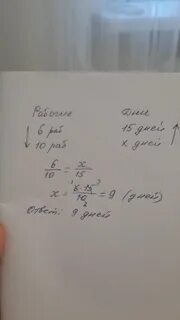 Рабочие Дни
↓ 6 раб 15 дней ↑
10 раб х дней
6/10 = х/15
х = 6·15/10 = 9 (дней)
Ответ: 9 дней